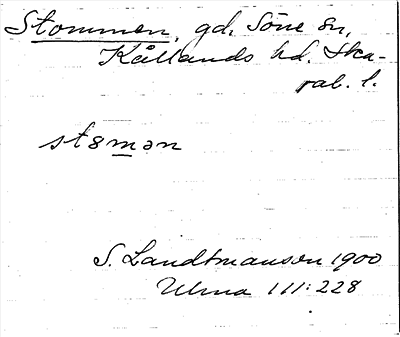 Stommen, gd, Söne sn,
Kållands hd. Ska-
rab. l.
stemən
S. Landtmanson 1900
Ulma 111:228